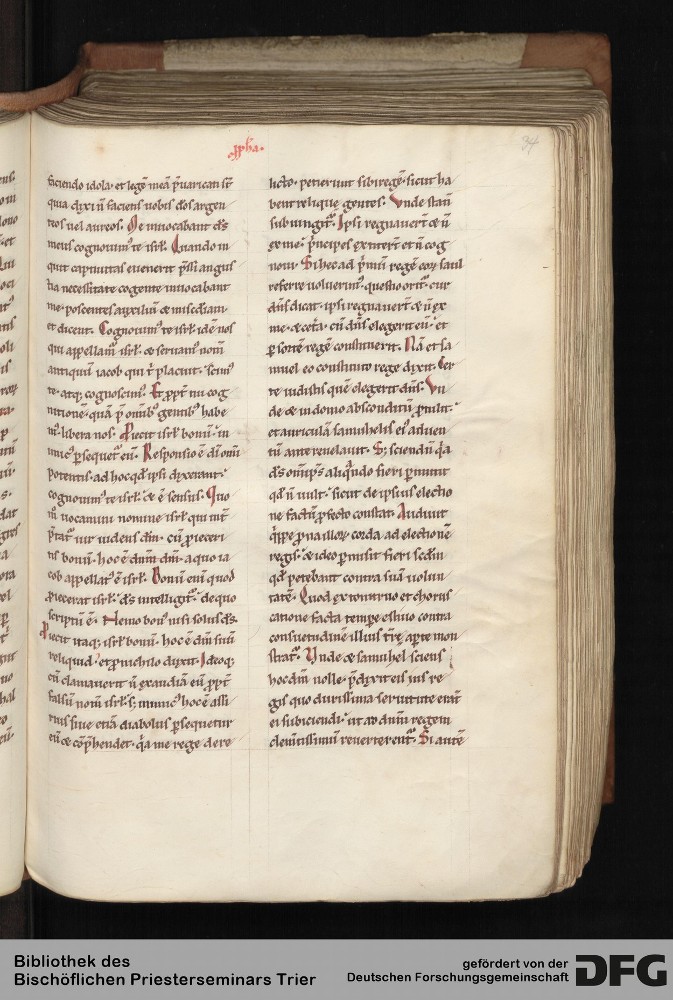 ppħa.
34
faciendo idola. et legē meā p̄uaricati sт̄
quia dixi n̄ faciens uobis deos argen
teos uel aureos. Me inuocabant ds̄
meus cognouim᷒ te isrł. Quando in
quit captiuitas euenerit p̄ssi angus
tia necessitate cogente inuocabant
me. poscentes auxiliū & misc̄diam
et dicent. Cognouim᷒ te isrł idē nos
qui appellam᷒ isrł. & seruam᷒ nom̄
antiquū iacob qui t̄ placuit. scim᷒
te. atq; cognoscim᷒. Et ꝓpt̄ tui cog
nitionē. quā p̄ omīb᷒ gentib᷒ habe
m᷒. libera nos. Proiecit isrł bonū. in
imic᷒ ꝑsequet᷑ eū. Responsio ē dī om̄i
potentis. ad hoc qđ ipsi dixerant.
cognouim᷒ te isrł. & ē sensus. Quo
m̊ uocamini nomine isrł qui mī
p̄tat᷑ uir uidens dm̄. cū ꝓieceri
tis bonū. hoc ē dnm̄ dm̄. a quo ia
cob appellat᷒ ē isrł. Bonū enī quod
ꝓiecerat isrł. ds̄ intelligit᷑. de quo
scriptū ē. Nemo bon᷒ nisi solus ds̄.
Proiecit itaq; isrł bonū. hoc ē dm̄ suū
reliquid. et ꝓ nichilo duxit. Ideoq;
cū clamauerit n̄ exaudiā eū ꝓpt̄
falsū nom̄ isrł. s; inimic᷒ hoc ē assi
rius siue etiā diabolus ꝑsequetur
eū & cōp̄hendet. q̄a me rege dere
licto. petierunt sibi regē. sicut ha
bent reliquę gentes. Vnde statī
subiungit᷑. Ipsi regnauerт̄ & n̄
ex me. p̄ncipes extiterт̄ et n̄ cog
noui. Si hec ad p̄mū regē eoꝝ saul
referre uoluerim᷒. questio orit᷑. cur
dn̄s dicat. ipsi regnauerт̄ & n̄ ex
me. & cet̄a. cū dn̄s elegerit eū. et
ꝑ sortē regē constituerit. Nā et sa
muel eo constituto rege dixit. Cer
te uidistis quē elegerit dn̄s. Vn
de & in domo absconditū ꝓtulit.
et auriculā samuhelis ei᷒ aduen
tū ante reuelauit. S; sciendū q̄a
ds̄ omīps̄ aliq̄ndo fieri ꝑmittit
qđ n̄ uult. sicut de ipsius electio
ne factū ꝓfecto constat. Audiuit
q̄ppe prona illoꝝ corda ad electionē
regis. & ideo ꝑmisit fieri scdm̄
qđ petebant contra suā uolun
tatē. Quod ex tonitruo et choris
catione facta tempe estiuo contra
consuetudinē illius trē. apte mon
strat᷑. Vnde & samuhel sciens
hoc dm̄ nolle. p̄dixit eis ius re
gis quo durissima seruitute erant
ei subiciendi. ut ad dnm̄ regem
clemtissimum reuerterent᷑. Si autē
Bibliothek des
Bischöflichen Priesterseminars Trier
gefördert von der
Deutschen Forschungsgemeinschaft
DFG